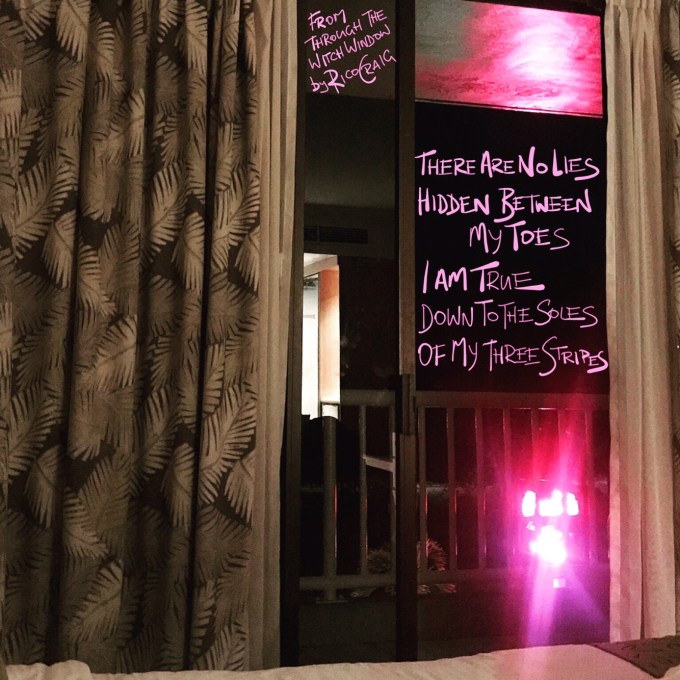 FROM
THROUGH THE
WITCH WINDOW
by RICO CRAIG
THERE ARE NO LIES
HIDDEN BETWEEN
MY TOES
I AM TRUE
DOWN TO THE SOLES
OF MY THREE STRIPES